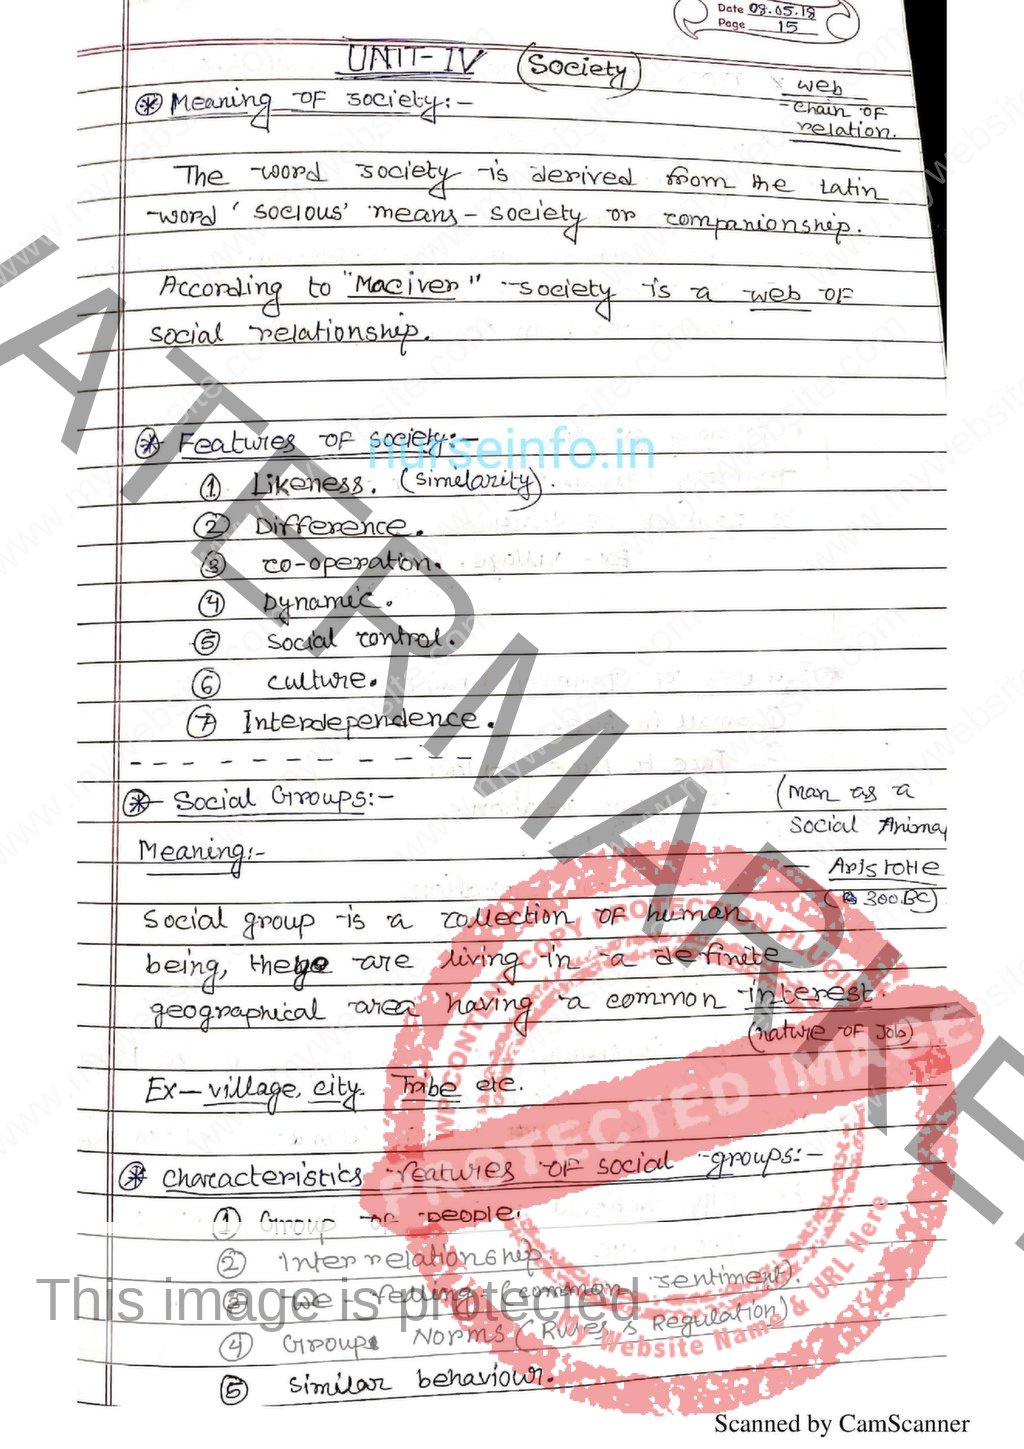 Date 08.05.18
Page 15
UNIT-IV (Society)
web
- chain of
relation.
* Meaning of society:-
The word society is derived from the Latin
word 'socious' means - society or companionship.
According to "Maciver" society is a web of
social relationship.
* Features of society:-
nurseinfo.in
① Likeness. (similarity).
② Difference.
③ co-operation.
④ Dynamic.
⑤ social control.
⑥ culture.
⑦ Interdependence.
* Social Groups:-
(man as a
Social Animal
- Aristotle
(300 BC)
Meaning:-
Social group is a collection of human
being, these are living in a definite
geographical area having a common interest.
(nature of job)
Ex- village, city, Tribe etc.
* characteristics features of social groups:-
① Group of people.
② Inter relationship.
③ we - felling (common sentiment).
④ Groups Norms (Rules & Regulation)
⑤ similar behaviour.
WATERMARKED
This image is protected
WP CONTENT COPY PROTECTION PLUGIN
PROTECTED IMAGE
My Website Name & URL Here
www.mywebsite.com
Scanned by CamScanner